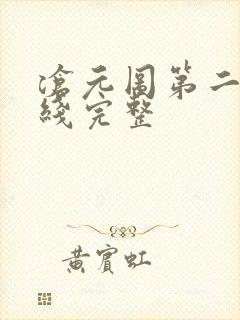 滄元圖第二
綫完整
黃賓虹